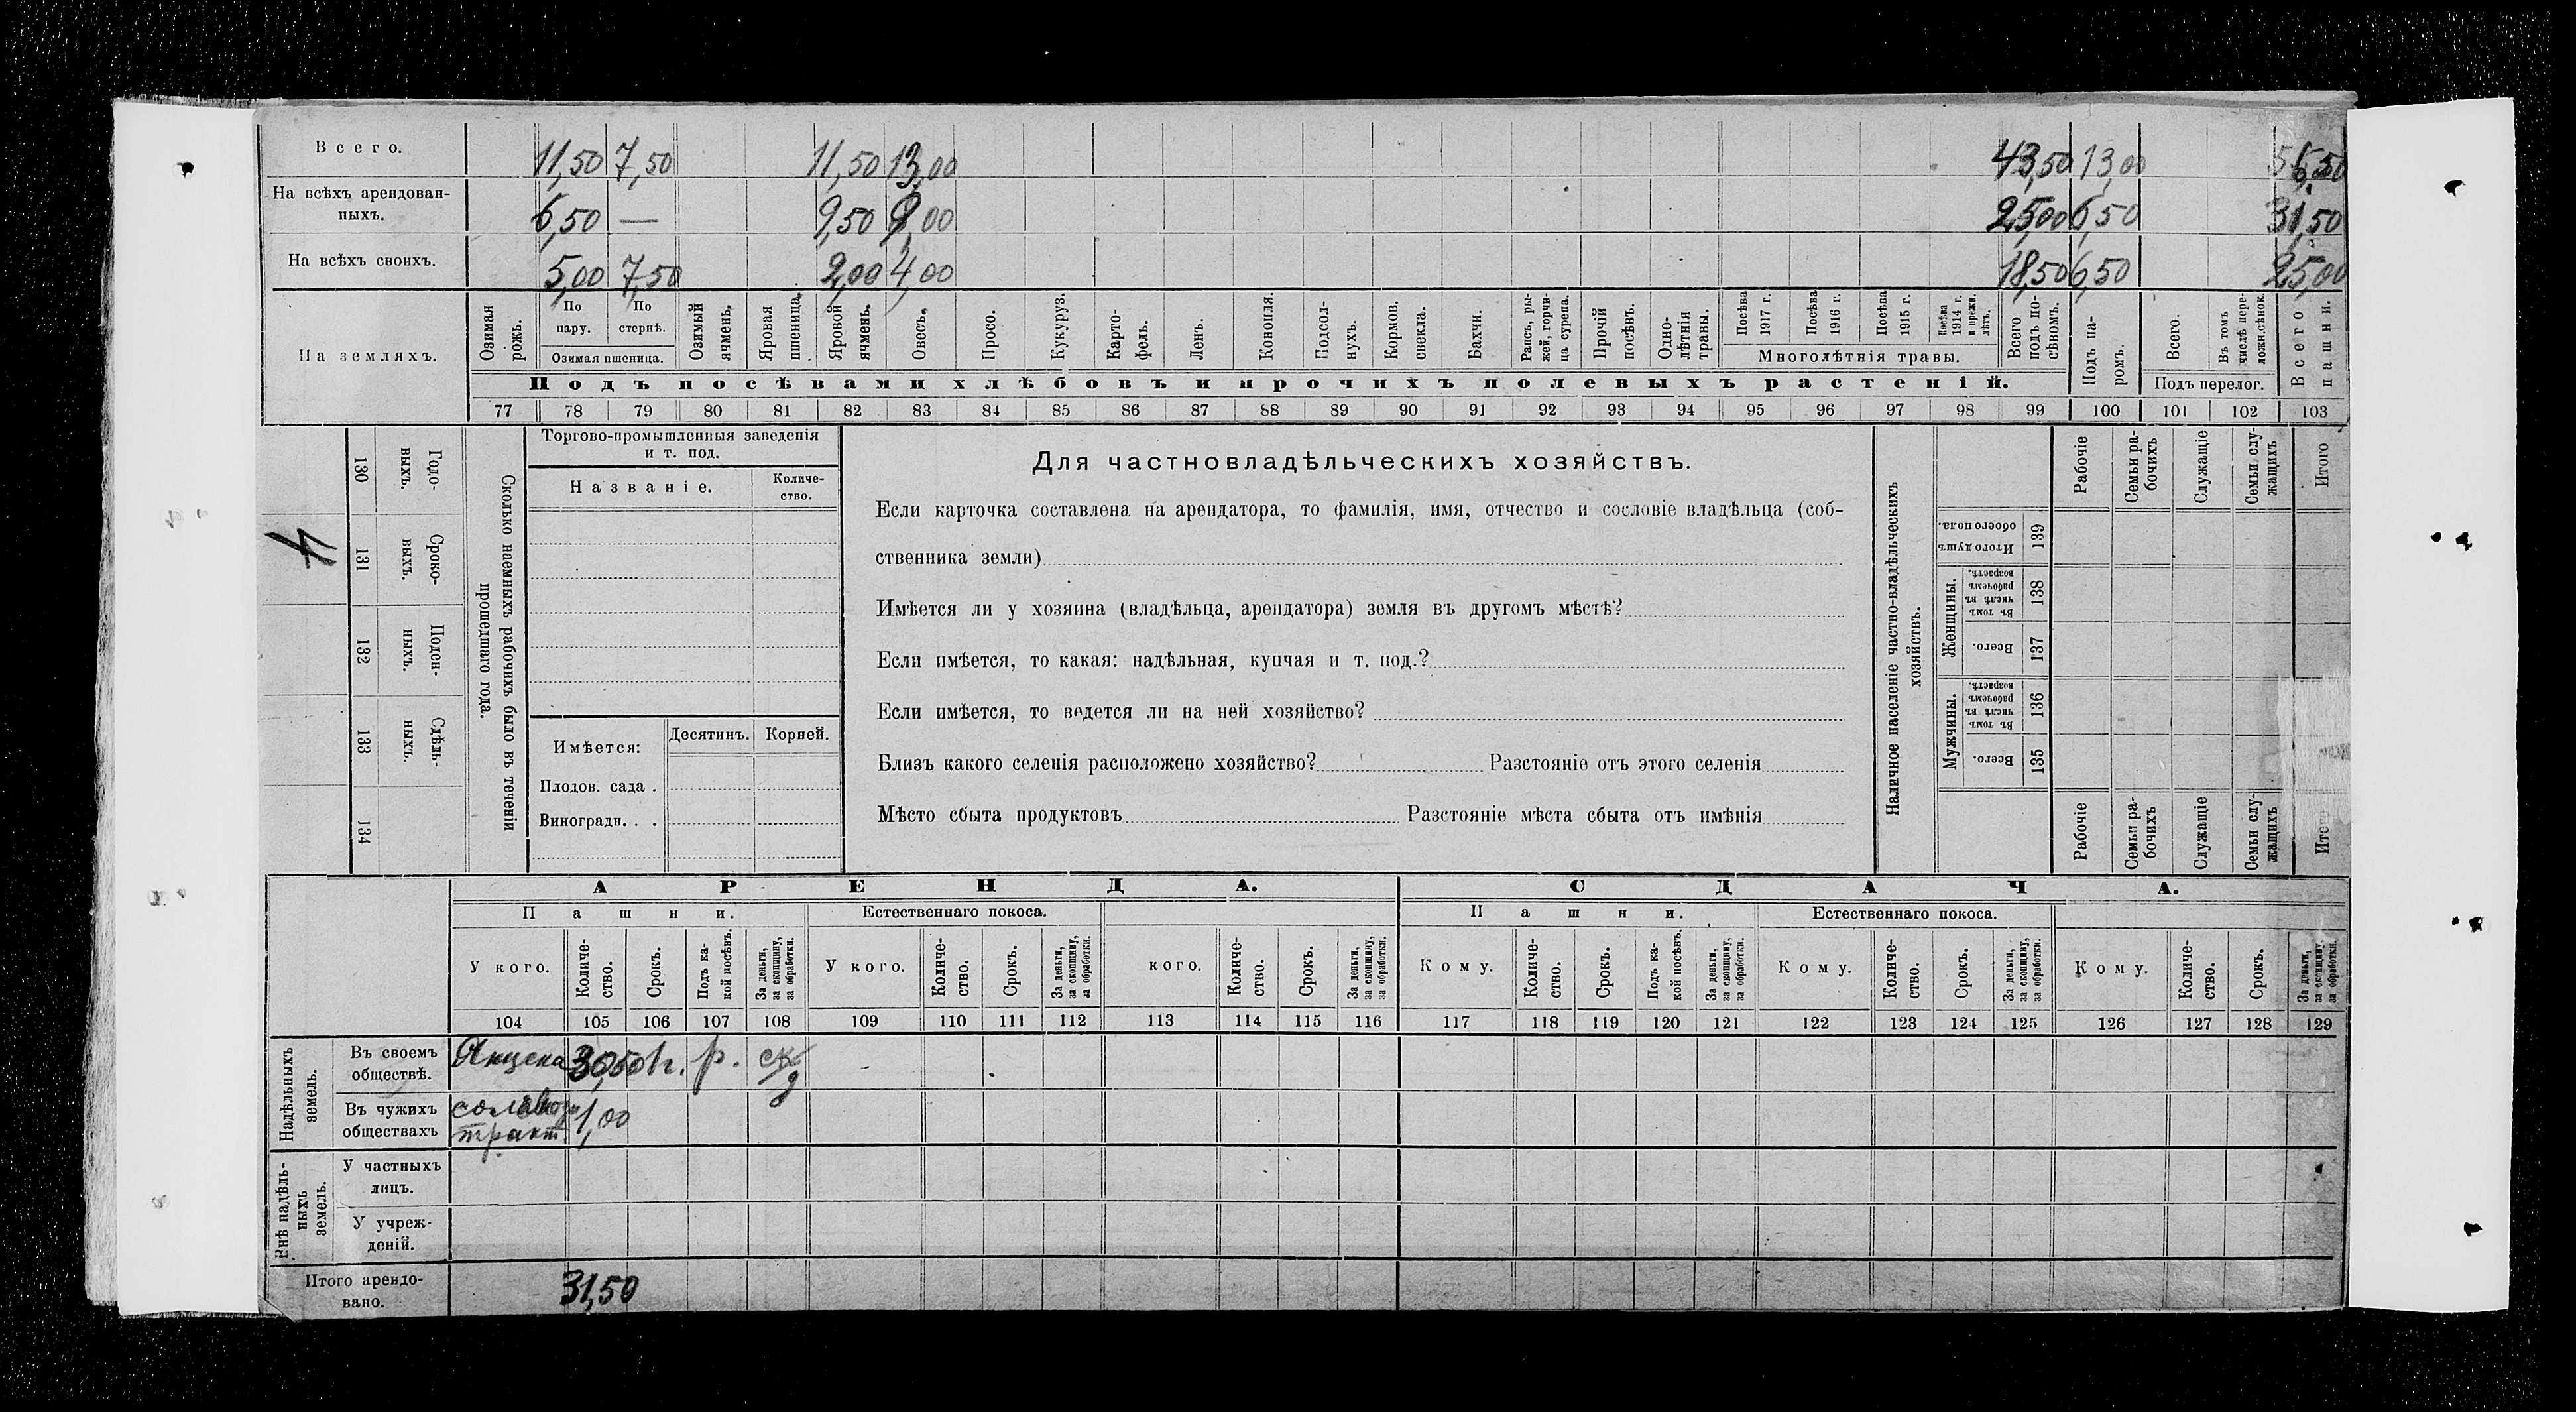 Всего. 11,50 7,50 11,50 13,00 43,50 13,00 56,50
На всѣхъ арендован-
ныхъ. 6,50 — 9,50 9,00 25,00 6,50 31,50
На всѣхъ своихъ. 5,00 7,50 2,00 4,00 18,50 6,50 25,00
На земляхъ.
Озимая рожь.
По пару.
По стернѣ.
Озимая пшеница.
Озимый ячмень.
Яровая пшеница.
Яровой ячмень.
Овесъ.
Просо.
Кукуруз.
Карто-
фель.
Ленъ.
Конопля.
Подсол-
нухъ.
Кормов.
свекла.
Бахчи.
Рапсъ, ры-
жей, горчи-
ца сурепа.
Прочій
посѣвъ.
Одно-
лѣтнія
травы.
Посѣва
1917 г.
Посѣва
1916 г.
Посѣва
1915 г.
Посѣва
1914 г.
и прежн.
лѣтъ.
Многолѣтнія травы.
Всего
подъ по-
сѣвомъ.
Подъ па-
ромъ.
Всего.
Въ томъ
числѣ пере-
ложн.сѣнок.
Подъ перелог.
Всего
пашни.
Подъ посѣвами хлѣбовъ и прочихъ полевыхъ растеній.
77 78 79 80 81 82 83 84 85 86 87 88 89 90 91 92 93 94 95 96 97 98 99 100 101 102 103
4
130 Годо-
ныхъ.
131 Сроко-
выхъ.
132 Поден-
ныхъ.
133 Сдѣль-
ныхъ.
134
Сколько наемныхъ рабочихъ было въ теченіи
прошедшаго года.
Торгово-промышленныя заведенія
и т. под.
Названіе.
Количе-
ство.
Имѣется: Десятинъ. Корней.
Плодов. сада .
Виноградн. . .
Для частновладѣльческихъ хозяйствъ.
Если карточка составлена на арендатора, то фамилія, имя, отчество и сословіе владѣльца (соб-
ственника земли)
Имѣется ли у хозяина (владѣльца, арендатора) земля въ другомъ мѣстѣ?
Если имѣется, то какая: надѣльная, купчая и т. под.?
Если имѣется, то ведется ли на ней хозяйство?
Близъ какого селенія расположено хозяйство? Разстояніе отъ этого селенія
Мѣсто сбыта продуктовъ Разстояніе мѣста сбыта отъ имѣнія
Наличное населеніе частно-владѣльческихъ
хозяйствъ.
Рабочіе
Семьи ра-
бочихъ
Служащіе
Семьи слу-
жащихъ
Итого
Итого душъ
обоего пола.
139
Женщины.
Въ томъ
числѣ въ
рабочемъ
возрастѣ.
138
Всего.
137
Мужчины.
Въ томъ
числѣ въ
рабочемъ
возрастѣ.
136
Всего.
135
Рабочіе
Семьи ра-
бочихъ
Служащіе
Семьи слу-
жащихъ
АРЕНДА. СДАЧА.
Пашни. Естественнаго покоса. Пашни. Естественнаго покоса.
У кого.
Количе-
ство.
Срокъ.
Подъ ка-
кой посѣвъ.
За деньги,
за скопщину,
за обработки.
У кого.
Количе-
ство.
Срокъ.
За деньги,
за скопщину,
за обработки.
кого.
Количе-
ство.
Срокъ.
За деньги,
за скопщину,
за обработки.
Кому.
Количе-
ство.
Срокъ.
Подъ ка-
кой посѣвъ.
За деньги,
за скопщину,
за обработки.
Кому.
Количе-
ство.
Срокъ.
За деньги,
за скопщину,
за обработки.
Кому.
Количе-
ство.
Срокъ.
За деньги,
за скопщину,
за обработки.
104 105 106 107 108 109 110 111 112 113 114 115 116 117 118 119 120 121 122 123 124 125 126 127 128 129
Надѣльныхъ
земель.
Въ своемъ
обществѣ. 30,50 1 г. р.
Въ чужихъ
обществахъ 1,00
тракт.
Внѣ надѣль-
ныхъ
земель.
У частныхъ
лицъ.
У учреж-
деній.
Итого арендо-
вано. 31,50